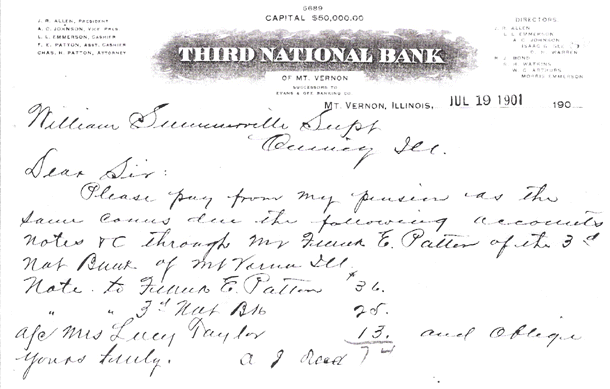 5689
CAPITAL $50,000.00
J. R. ALLEN, PRESIDENT
A. C. JOHNSON, VICE PREST
L. L. EMMERSON, CASHIER
F. E. PATTON, ASST. CASHIER
CHAS. H. PATTON, ATTORNEY
DIRECTORS
ALLEN
L. L. EMMERSON
A. C. JOHNSON
WARREN
BOND
WATKINS
MORRIS EMMERSON
THIRD NATIONAL BANK
OF MT. VERNON
SUCCESSORS TO
EVANS & BANKING CO
MT. VERNON, ILLINOIS, JUL 19 1901 190
William Summerville Supt
Quincy Ill.
Dear Sir:
Please pay from my pension as the
same comes due the following accounts
notes &C through Mr Frank E. Patton of the 3d
Nat Bank of Mt Vernon Ill.
Note to Frank E. Patton $36.
" " 3d Nat Bk 25.
a/c Mrs Lucy Taylor 13. and Oblige
Yours truly. A J Reed 74